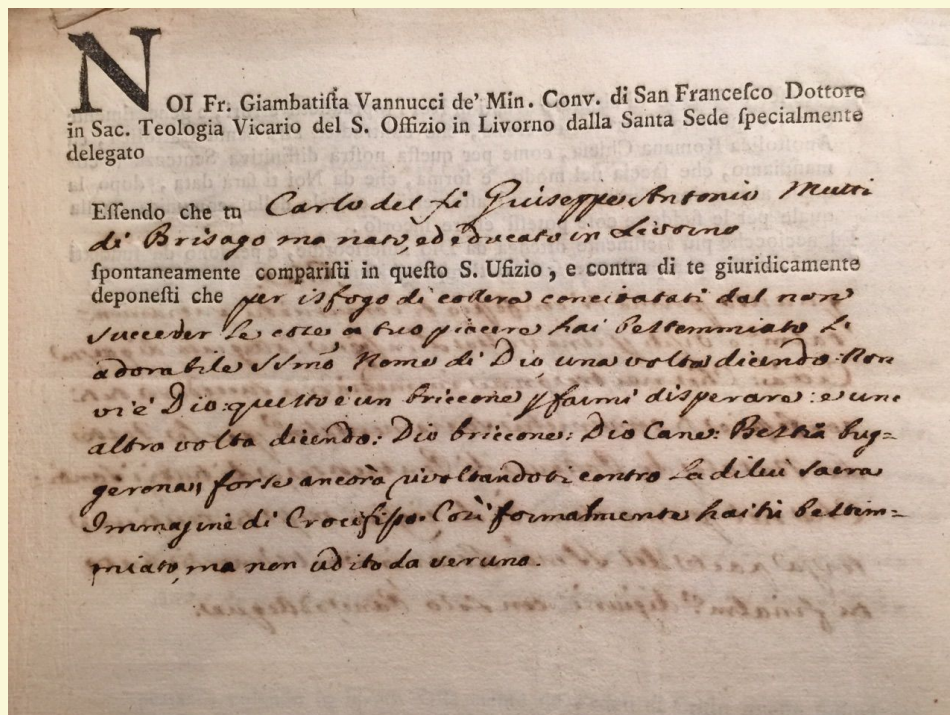 NOI Fr. Giambatiſta Vannucci de' Min. Conv. di San Franceſco Dottore
in Sac. Teologia Vicario del S. Offizio in Livorno dalla Santa Sede ſpecialmente
delegato
Eſſendo che tu Carlo del fú Giuseppe Antonio Mutti
di Brisago ma nato, ed educato in Livorno
ſpontaneamente compariſti in queſto S. Ufizio, e contra di te giuridicamente
deponeſti che per isfogo di collera concitatati dal non
succeder le cose a tuo piacere hai bestemmiato L'
adorabile SSmo Nome di Dio una volta dicendo: Non
vi è Dio: questo è un briccone farmi disperare: e un
altra volta dicendo: Dio briccone: Dio Cane: Bestia bug=
gerona, forse ancora rivoltandoti contro La di lui sacra
Immagine di Crocifisso. Così formalmente hai tù bestem=
miato, ma non udito da veruno.